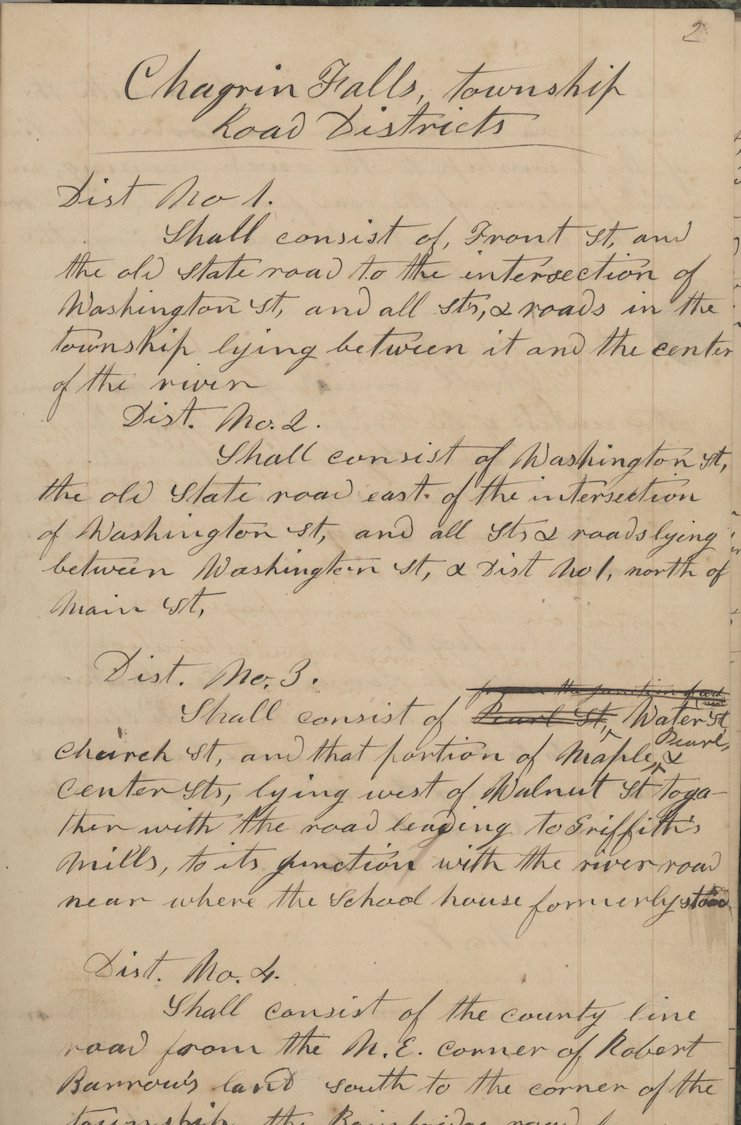 2
Chagrin Falls, township
Road Districts
Dist No 1.
Shall consist of, Front St, and
the old state road to the intersection of
Washington St, and all Sts, & roads in the
township lying between it and the center
of the river
Dist. No. 2.
Shall consist of Washington St,
the old State road east of the intersection
of Washington St, and all Sts & roads lying
between Washington St, & Dist No 1, north of
Main St,
Dist. No. 3.
from the junction of
Shall consist of Pearl St, Water St
Pearl,
Church St, and that portion of Maple, &
Center Sts, lying west of Walnut St toga-
ther with the road leading to Griffith's
Mills, to its junction with the river road
near where the School house formerly stood
Dist. No. 4.
Shall consist of the county line
road from the N. E. corner of Robert
Barrow's land south to the corner of the
township, the Bainbridge road